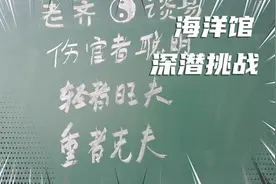 老齐☯谈易
伤官者聪明
轻者旺夫
重者克夫
海洋馆
深潜挑战